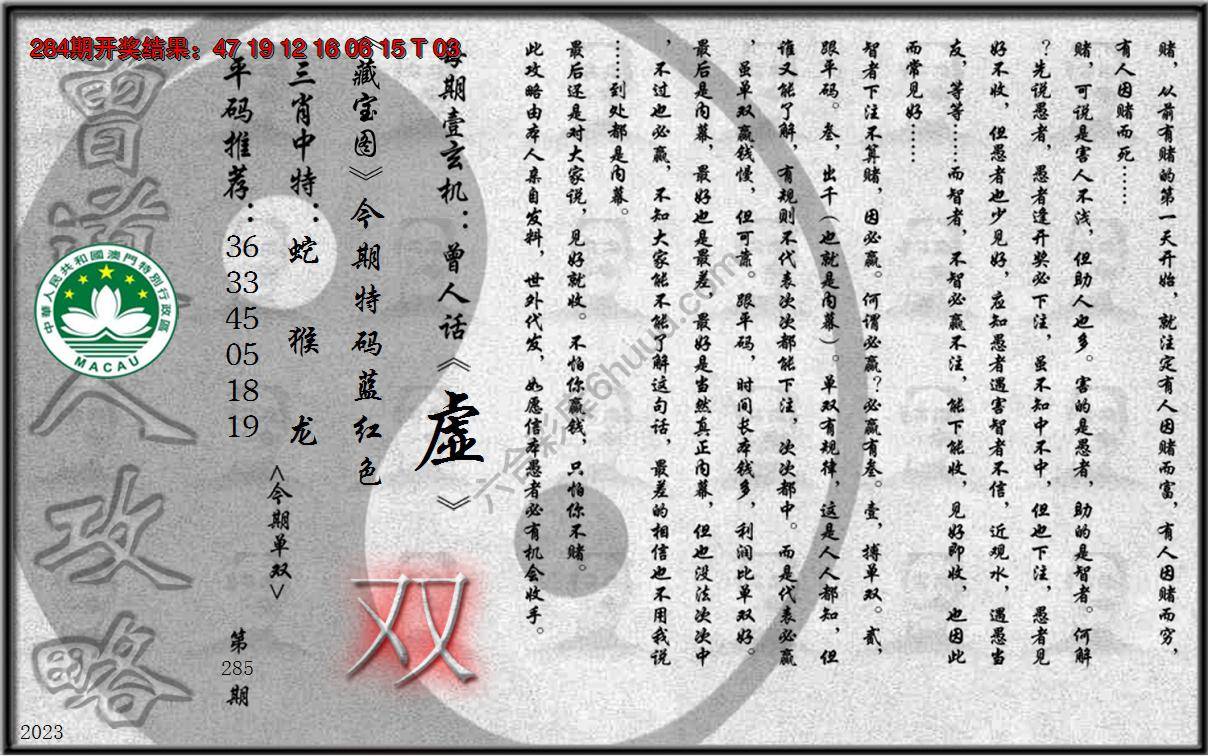 284期开奖结果：47 19 12 16 06 15 T 03
赌，从前有赌的第一天开始，就注定有人因赌而富，有人因赌而穷，
有人因赌而死……
赌，可说是害人不浅，但助人也多。害的是愚者，助的是智者。何解
？先说愚者，愚者逢开奖必下注，虽不知中不中，但也下注，愚者见
好不收，但愚者也少见好，应知愚者遇害智者不信，近观水，遇愚当
友，等等……而智者，不智必赢不注，能下能收，见好即收，也因此
而常见好……
智者下注不算赌，因必赢。何谓必赢？必赢有叁。壹，搏单双。贰，
跟平码。叁，出千（也就是内幕）。单双有规律，这是人人都知，但
谁又能了解，有规则不代表次次都能下注，次次都中。而是代表必赢
，虽单双赢钱慢，但可靠。跟平码，时间长本钱多，利润比单双好。
最后是内幕，最好也是最差，最好是当然真正内幕，但也没法次次中
，不过也必赢，不知大家能不能了解这句话，最差的相信也不用我说
……到处都是内幕。
最后还是对大家说，见好就收。不怕你赢钱，只怕你不赌。
此攻略由本人亲自发料，世外代发，如愿信本愚者必有机会收手。
每期壹玄机：曾人话《虚》
《藏宝图》今期特码蓝红色
双
三肖中特：蛇 猴 龙
<今期单双>
平码推荐：36 33 45 05 18 19
第285期
曾道人攻略
中華人民共和國澳門特別行政區
MACAU
2023